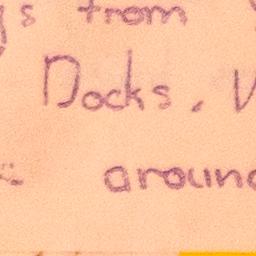 from
Docks.
around